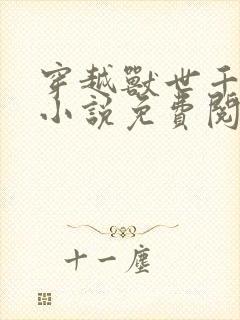 穿越獸世
小說免費閱
十一塵